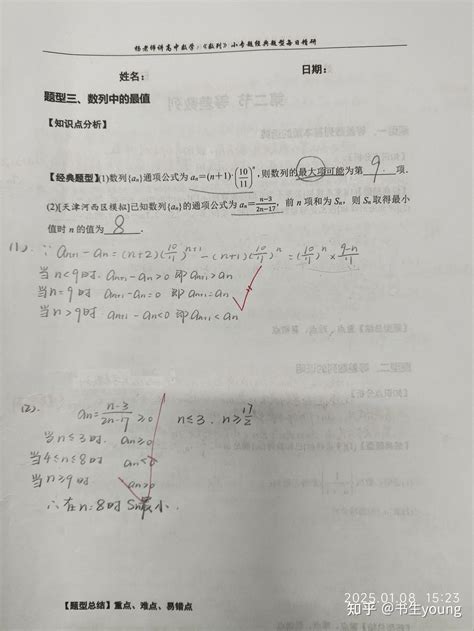 杨老师讲高中数学:《数列》小专题经典题型每日精研
姓名: 日期:
题型三、数列中的最值
【知识点分析】
【经典题型】(1)数列{aₙ}通项公式为 aₙ=(n+1)·(10/11)ⁿ,则数列的最大项可能为第 9 项.
(2)[天津河西区模拟]已知数列{aₙ}的通项公式为 aₙ=(n-3)/(2n-17),前 n 项和为 Sₙ,则 Sₙ取得最小
值时 n 的值为 8 .
(1). ∵ aₙ₊₁-aₙ=(n+2)(10/11)ⁿ⁺¹-(n+1)(10/11)ⁿ=(10/11)ⁿ×(9-n)/11
当n<9时. aₙ₊₁-aₙ>0 即aₙ₊₁>aₙ
当n=9时 aₙ₊₁-aₙ=0 即aₙ₊₁=aₙ
当n>9时 aₙ₊₁-aₙ<0 即aₙ₊₁<aₙ
(2). aₙ=(n-3)/(2n-17)≥0 n≤3、n≥17/2
当n≤3时. aₙ≥0
当4≤n≤8时 aₙ<0
当n≥9时 aₙ>0
∴在n=8时 Sₙ最小.
【题型总结】重点、难点、易错点
2025.01.08 15:23
知乎 @书生young